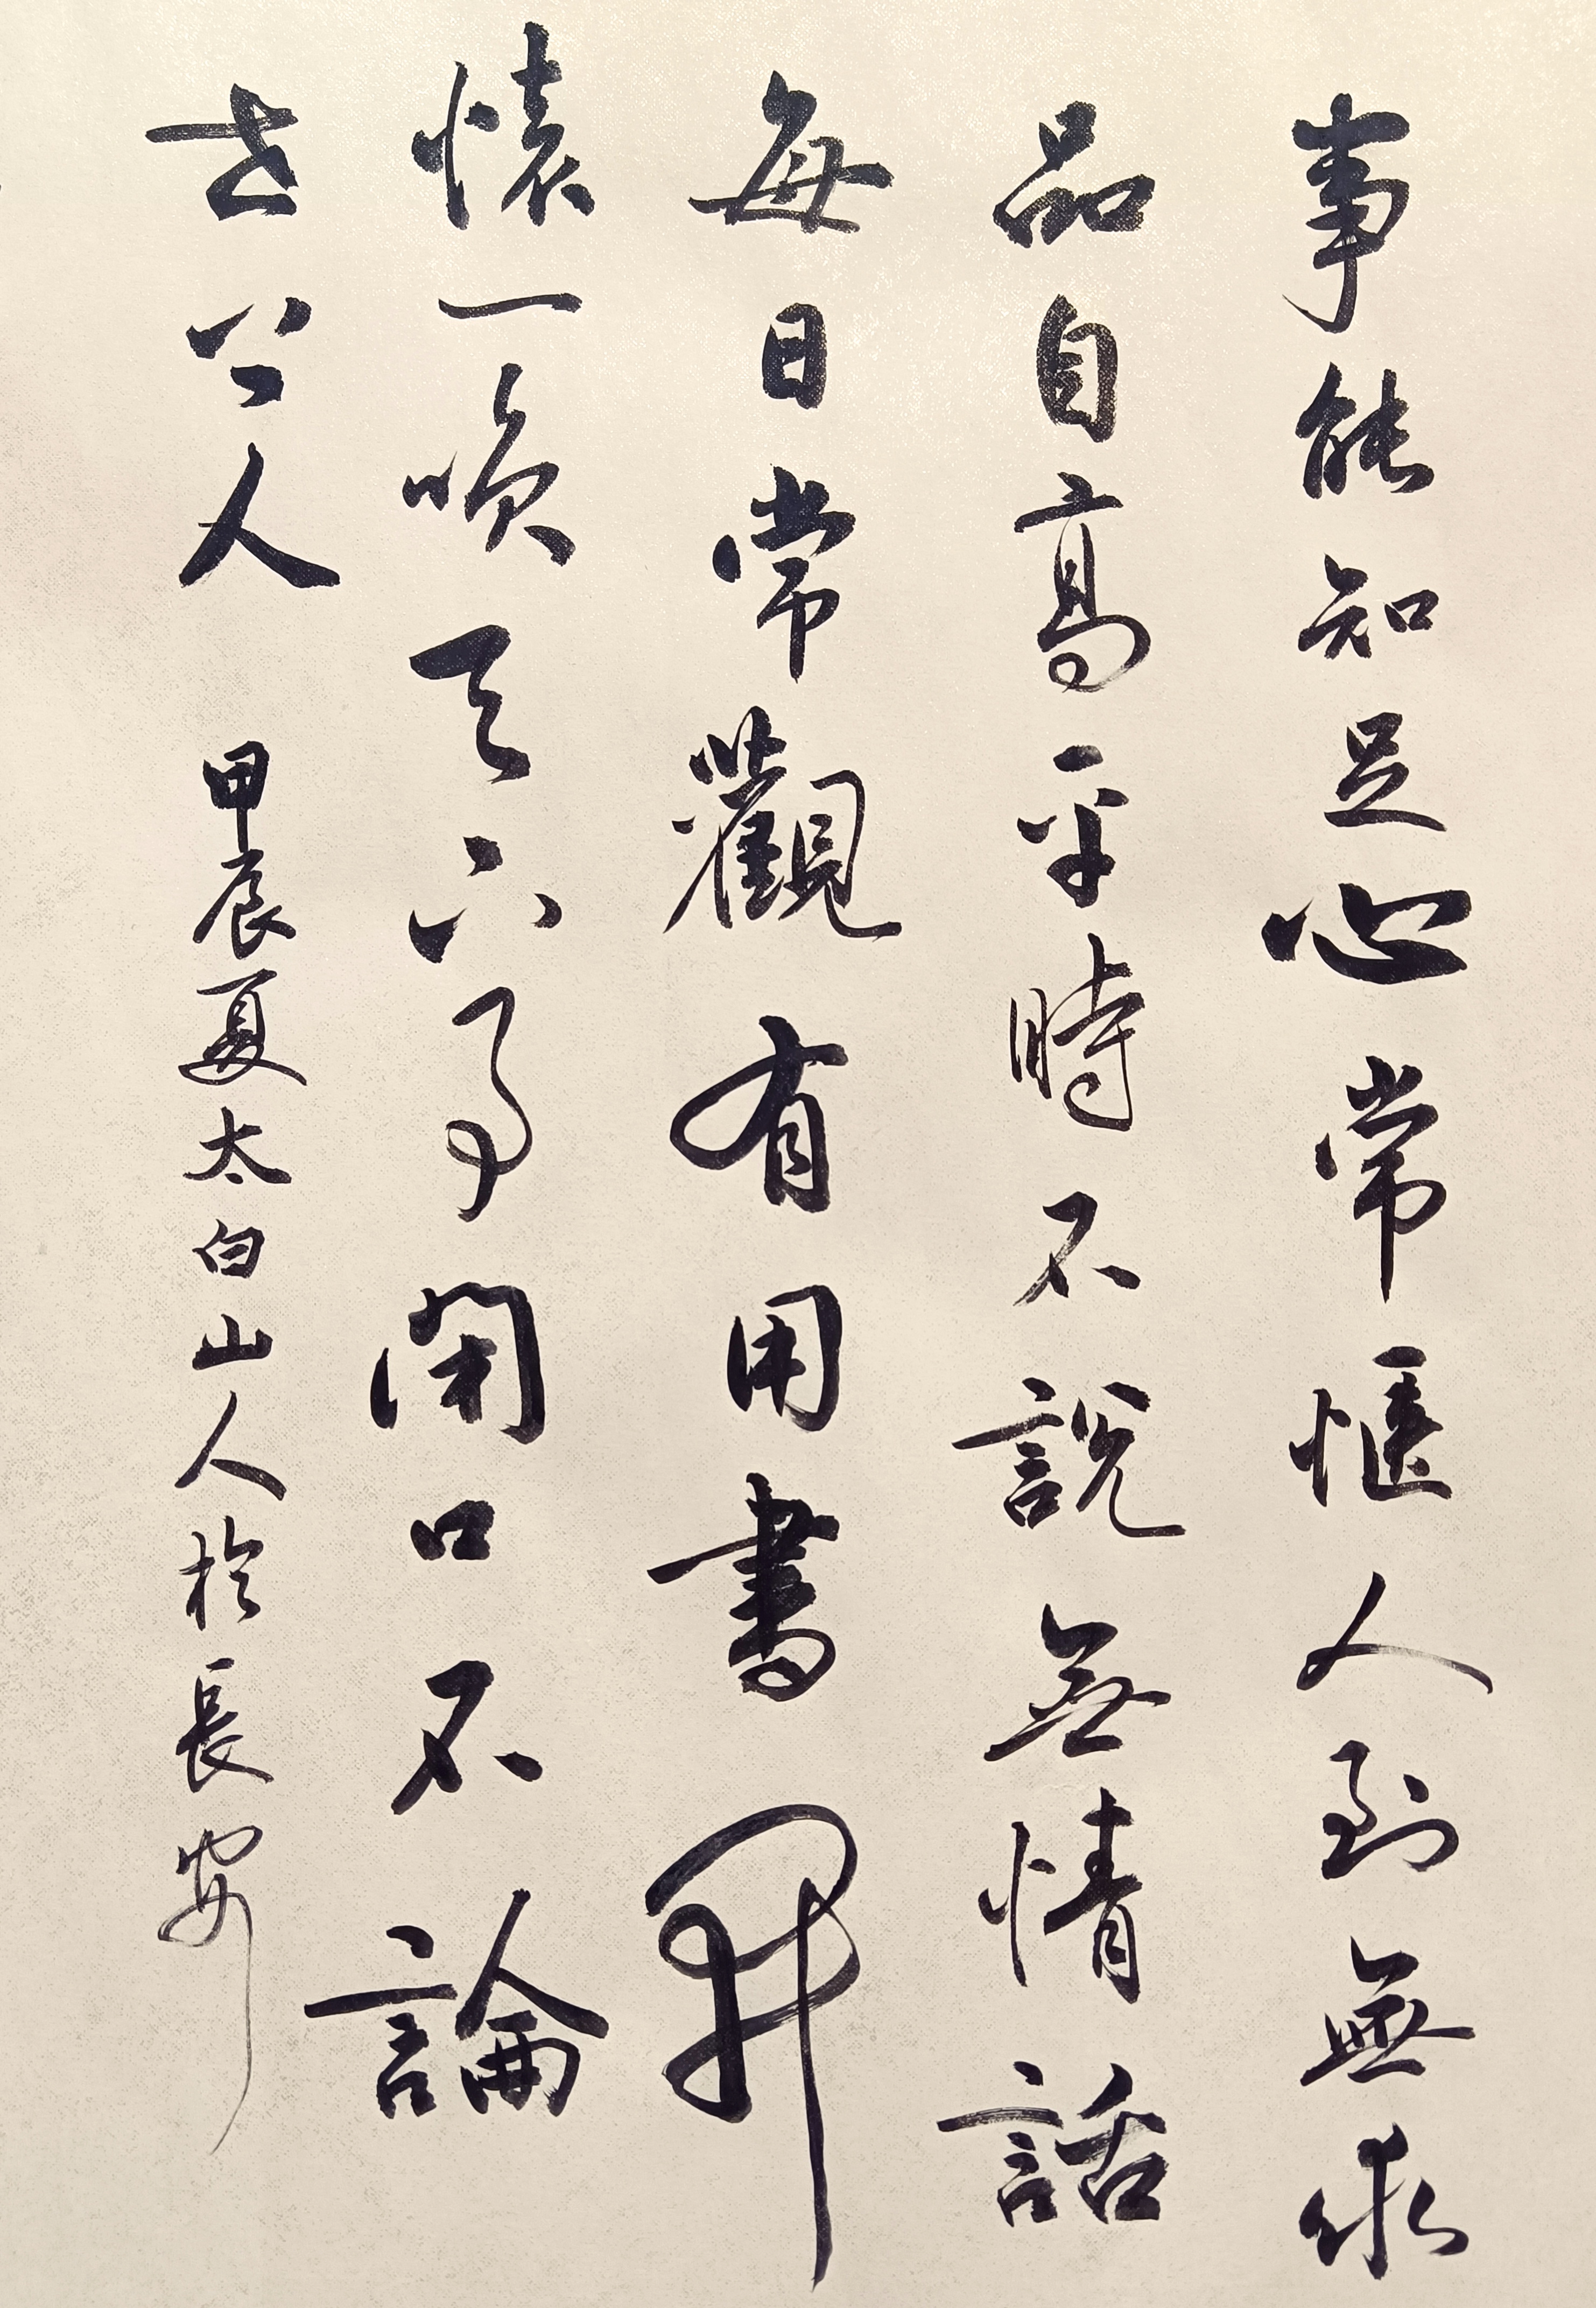 事能知足心常愜人到無求
品自高平時不說無情話
每日常觀有用書開
懷一喚天下事閉口不論
世上人 甲辰夏太白山人於長安